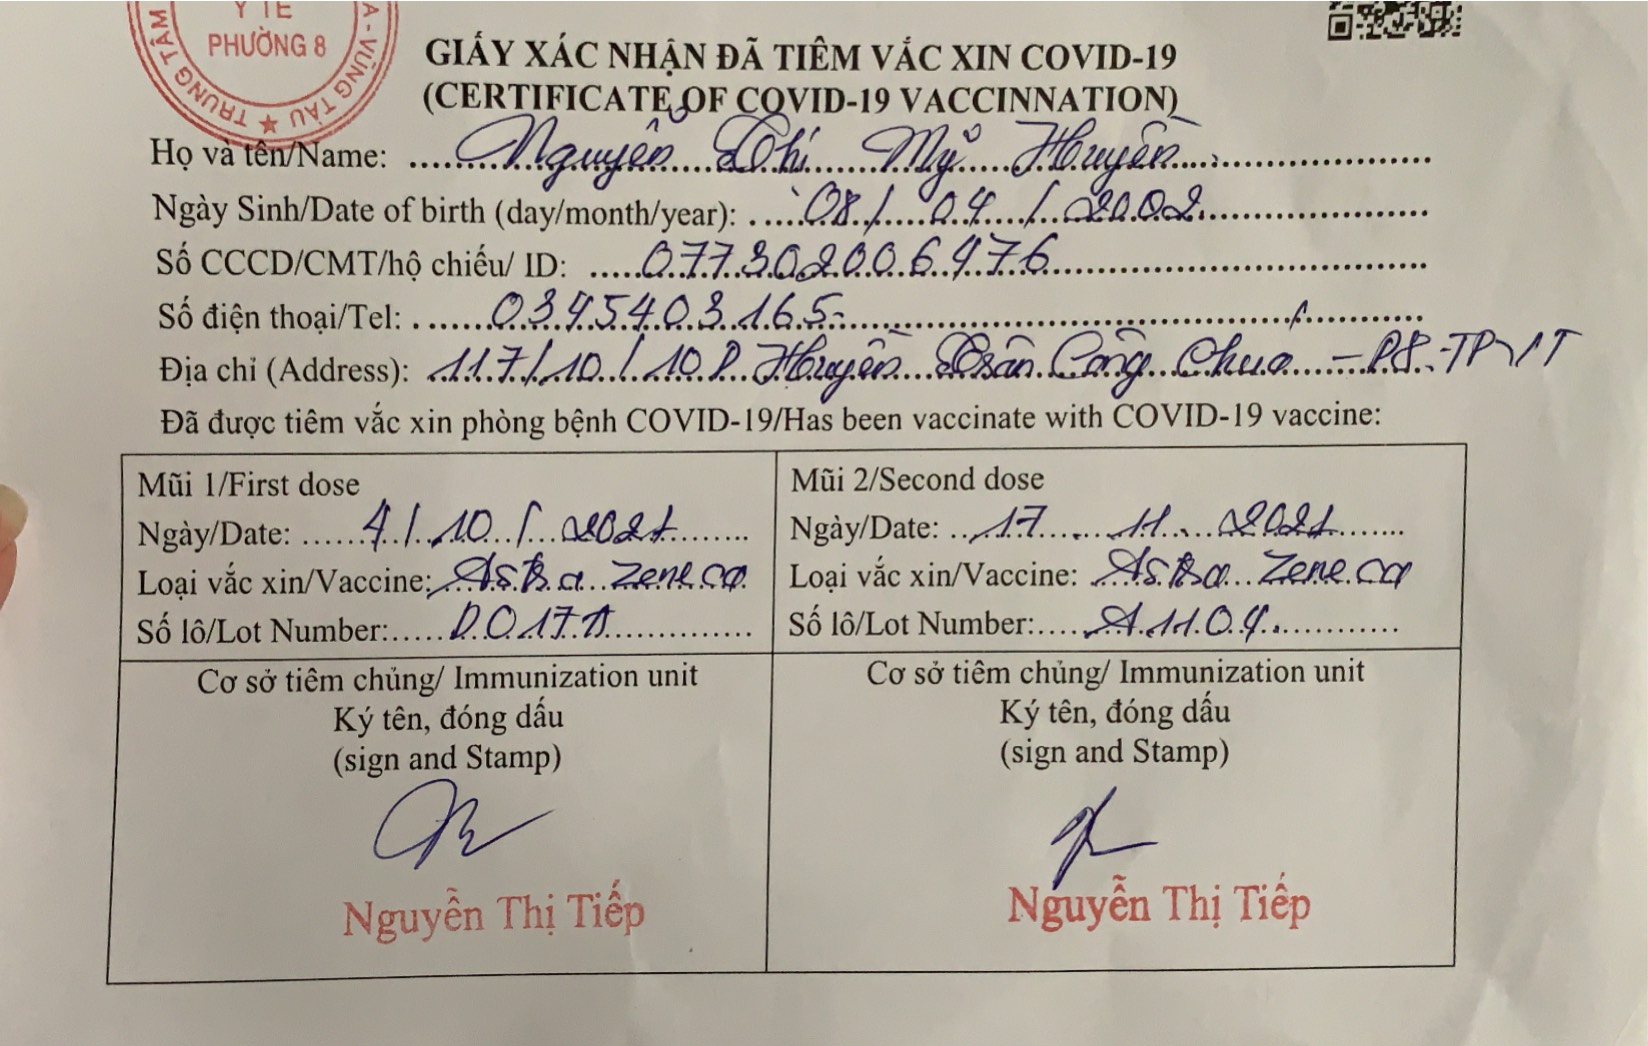 Y TẾ
PHƯỜNG 8
TRUNG TÂM
A - VŨNG TÀU
GIẤY XÁC NHẬN ĐÃ TIÊM VẮC XIN COVID-19
(CERTIFICATE OF COVID-19 VACCINNATION)
Họ và tên/Name: Nguyễn Thị Mỹ Huyền
Ngày Sinh/Date of birth (day/month/year): 08/ 04 / 2002
Số CCCD/CMT/hộ chiếu/ ID: 077302006476
Số điện thoại/Tel: 0345403165
Địa chỉ (Address): 117/10/10 Huyền Trân Công Chúa - P8 - TPVT
Đã được tiêm vắc xin phòng bệnh COVID-19/Has been vaccinate with COVID-19 vaccine:
Mũi 1/First dose
Ngày/Date: 4/10/2021
Loại vắc xin/Vaccine: Astra Zeneca
Số lô/Lot Number:
Mũi 2/Second dose
Ngày/Date: 17 . 11 . 2021
Loại vắc xin/Vaccine: Astra Zeneca
Số lô/Lot Number: A1104
Cơ sở tiêm chủng/ Immunization unit
Ký tên, đóng dấu
(sign and Stamp)
Nguyễn Thị Tiếp
Cơ sở tiêm chủng/ Immunization unit
Ký tên, đóng dấu
(sign and Stamp)
Nguyễn Thị Tiếp